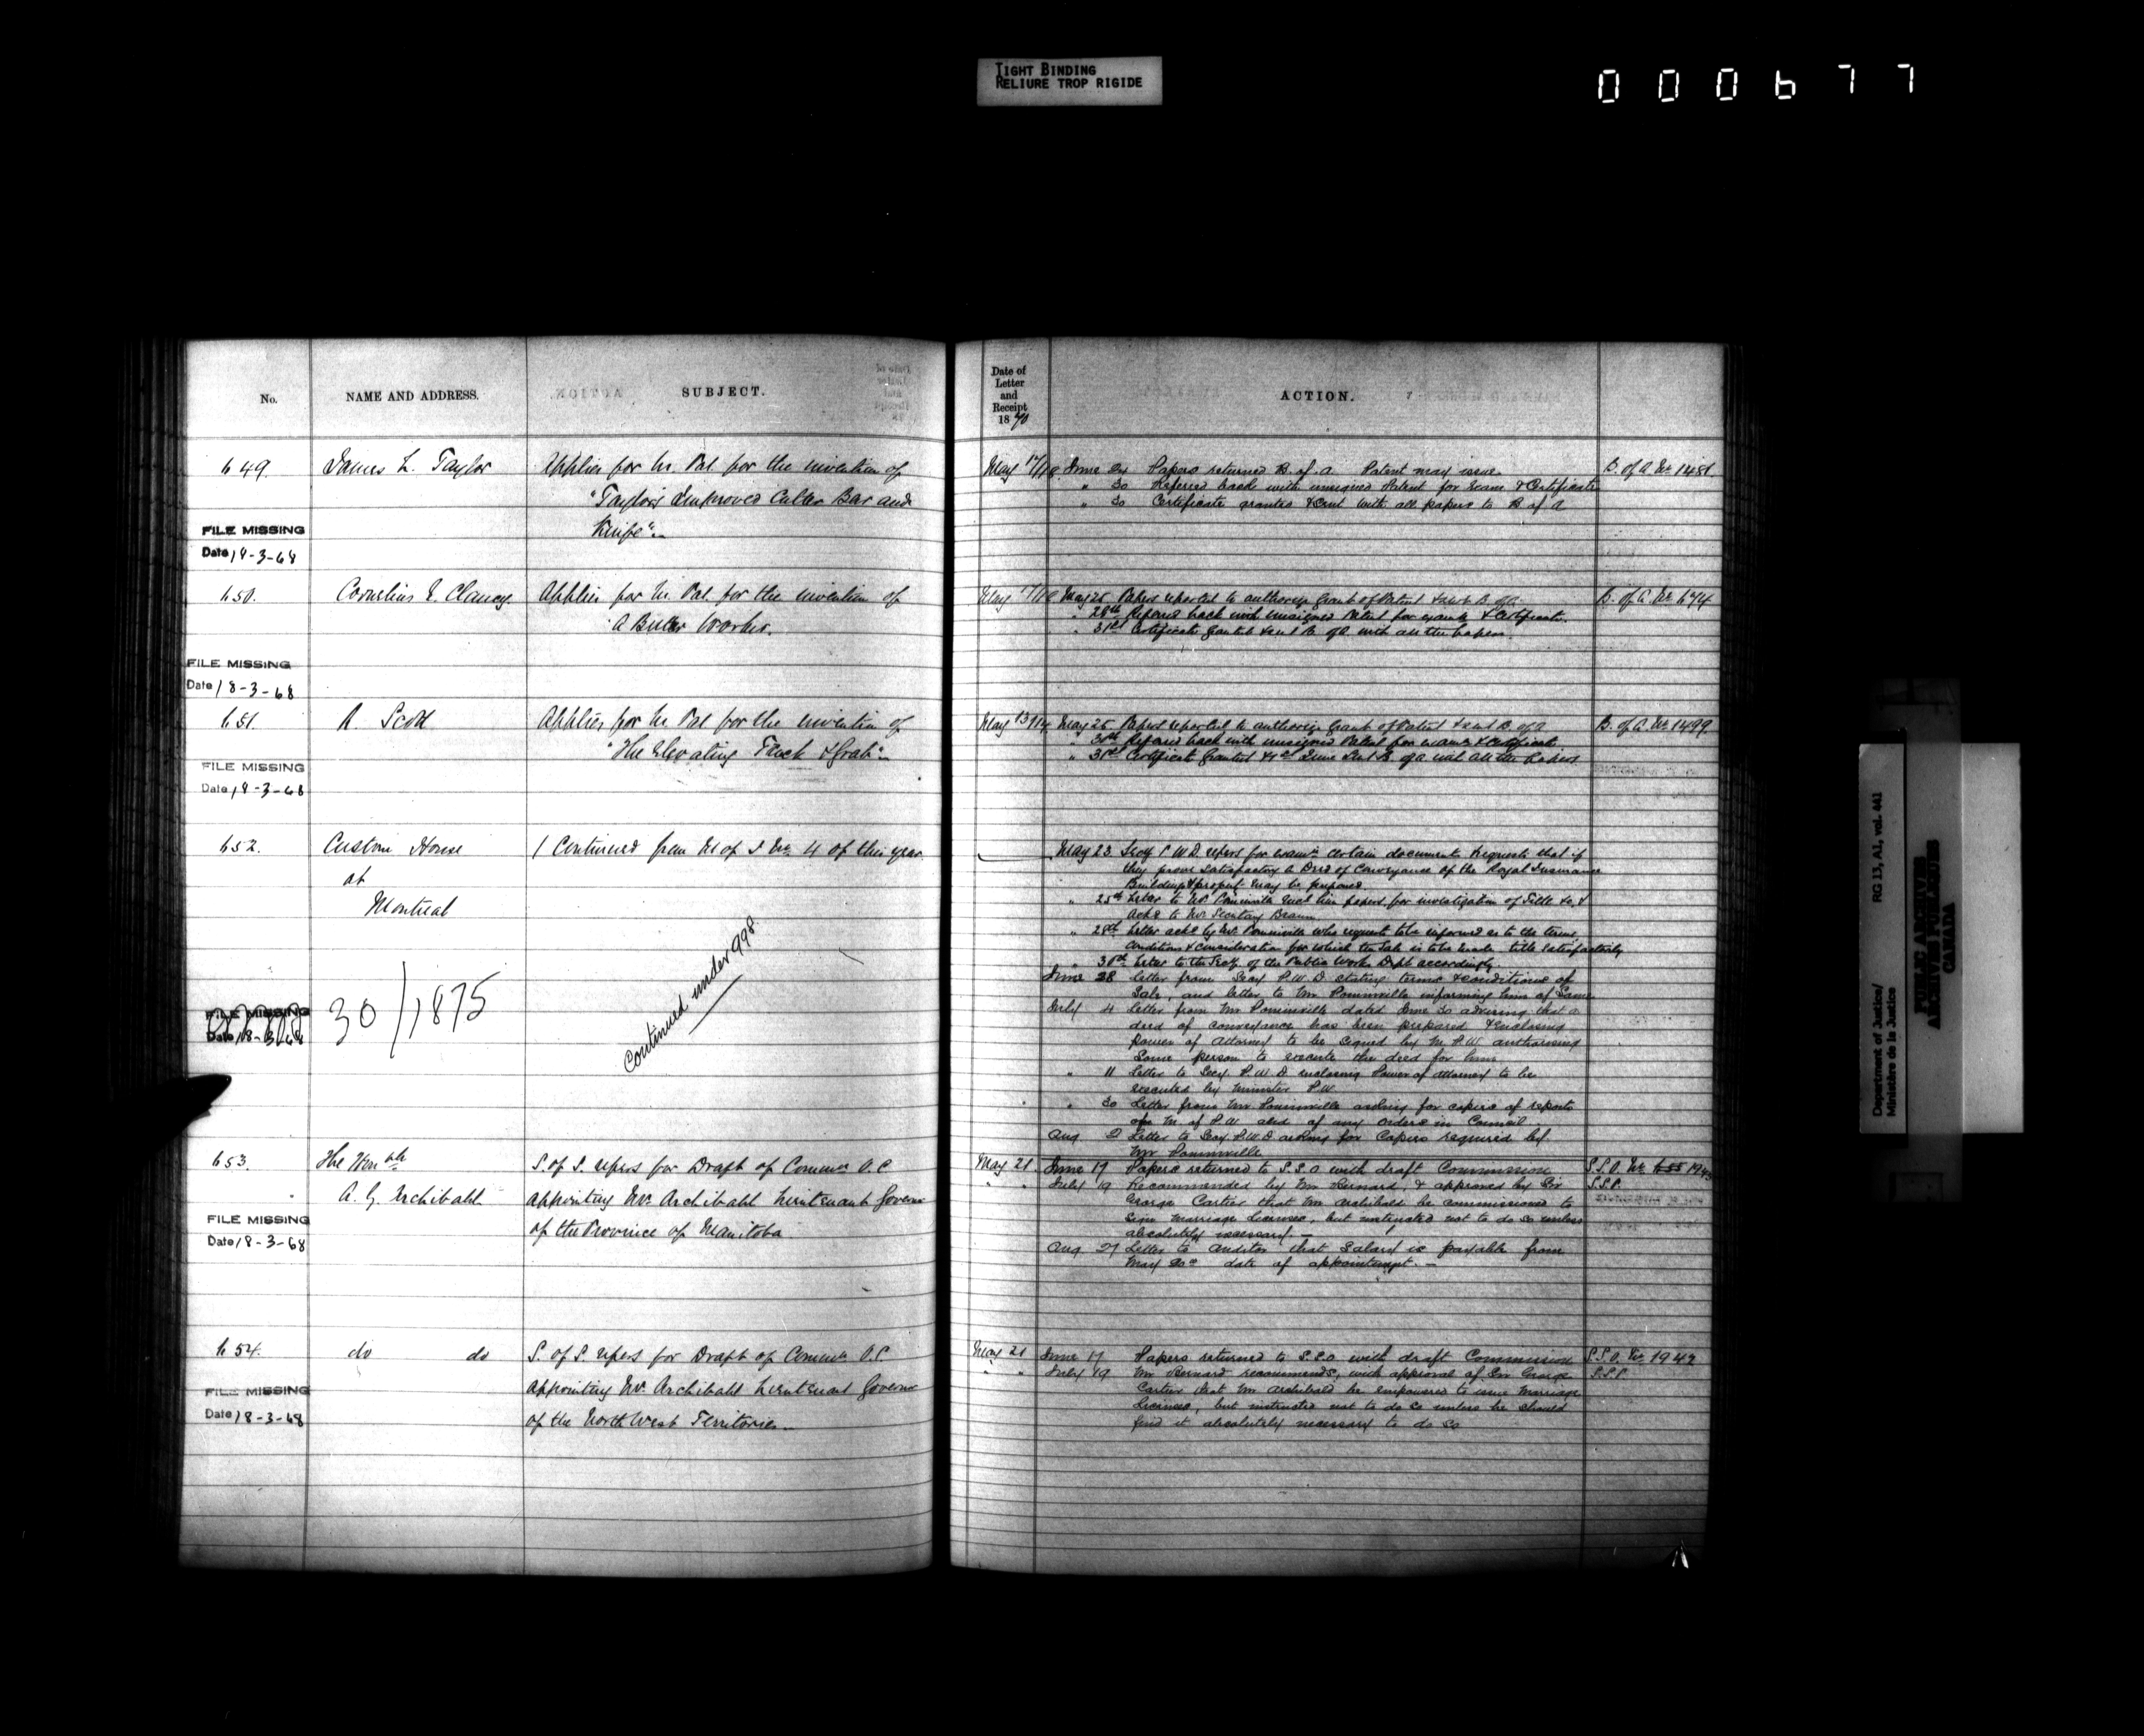 TIGHT BINDING
RELIURE TROP RIGIDE
000677
No.
NAME AND ADDRESS.
SUBJECT.
649.
James L. Taylor
Applies for In. Pat for the invention of
"Taylor's Improved Cutter Bar and
Knife".
FILE MISSING
Date 18-3-68
650.
Cornelius E. Clancy.
Applies for In. Pat. for the invention of
"A Butter Worker.
FILE MISSING
Date 18-3-68
651.
R. Scott
Applies for In. Pat for the invention of
"The Elevating Fork & Grab"
FILE MISSING
Date 18-3-68
652.
Custom House
at
Montreal
Continued from M of I No. 4 of this year.
Continued under 998.
30/1875
FILE MISSING
Date 18-3-68
653.
The Honble
A. G. Archibald
S. of S. refers for Draft of Commn O.C.
appointing Mr. Archibald Lieutenant Governor
of the Province of Manitoba
FILE MISSING
Date 18-3-68
654.
do do
S. of S. refers for Draft of Commn O.C.
appointing Mr Archibald Lieutenant Governor
of the North West Territories
FILE MISSING
Date 18-3-68
Date of
Letter
and
Receipt
1870
ACTION.
May 17/18 June 24 Papers returned B. of A. Patent may issue. B. of A. No. 1481.
" 30 Referred back with unsigned Patent for Exam & Certificate
" 30 Certificate granted & sent with all papers to B of A
May 17/18 May 25 Papers reported to authorize Grant of Patent & sent B. of A. B. of A. No. 674
" 28th Referred back with unsigned Patent for exam & Certificate.
" 31st Certificate granted & sent B. of A. with all the papers.
May 13/14 May 25 Papers reported to authorize Grant of Patent & sent B. of A. B. of A. No. 1499.
" 30th Referred back with unsigned Patent for exam & Certificate
" 31st Certificate Granted & 1st June Sent B. of A. with all the Papers
May 23 Secy P.W.D. refers for exam certain documents & requests that if
they prove satisfactory a Deed of Conveyance of the Royal Insurance
Buildings & propert may be prepared
" 25th Letter to Mr. Pominville sends him papers for investigation of Title &c. &
Ackd to Mr. Secretary Braun
" 28th Letter ackd by Mr. Pominville who requests to be informed as to the terms,
conditions & consideration for which the Sale is to be made title satisfactorily
" 30th Letter to the Secy. of the Public Works Dept accordingly.
June 28 Letter from Secy P.W.D stating terms & conditions of
Sale, and letter to Mr Pominville informing him of Same
July 4 Letter from Mr Pominville dated June 30 advising that a
deed of conveyance has been prepared & enclosing
power of attorney to be signed by M.P.W. authorising
Some person to execute the deed for him
" 11 Letter to Secy P.W.D enclosing Power of attorney to be
executed by Minister P.W.
" 30 Letter from Mr Pominville asking for copies of reports
of M. of P.W. and of any Orders in Council
Aug 2 Letter to Secy P.W.D asking for Copies required by
Mr Pominville
May 21 June 17 Papers returned to S.S.O with draft Commission S.S.O. No. 1943
" " July 19 Recommended by Mr Bernard, & approved by Sir S.S.P.
George Cartier that Mr Archibald be commissioned to
sign Marriage Licenses, but instructed not to do so unless
absolutely necessary.
Aug 27 Letter to Auditor that Salary is payable from
May 20th date of appointment.
May 21 June 17 Papers returned to S.S.O with draft Commission S.S.O. No. 1942
" " July 19 Mr Bernard recommends, with approval of Sir George S.S.P.
Cartier that Mr Archibald be empowered to issue Marriage
Licenses, but instructed not to do so unless he should
find it absolutely necessary to do so
Department of Justice/ RG 13, A1, vol. 441
Ministère de la Justice
PUBLIC ARCHIVES
ARCHIVES PUBLIQUES
CANADA